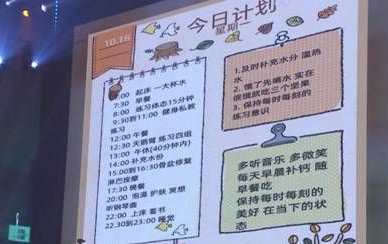 10.16
今日计划
星期一
7:00 起床 一大杯水
7:30 早餐
8:00 练习体态15分钟
9:30到11:00 健身私教
练习
12:00 午餐
12:30 天鹅臂 练习四组
13:00 午休(40分钟内)
14:00 补充水份
15.00到16:30骨盆修复
淋巴按摩
17:30 晚餐
20:00 泡澡 护肤 冥想
听钢琴曲
22:00 上床 看书
22.30到23:00 睡觉
1.及时补充水分 温热
水
2.饿了先喝水 实在
很饿就吃三个坚果
3.保持每时每刻的
练习意识
多听音乐 多微笑
每天早晨补钙 随
早餐吃
保持每时每刻的
美好 在当下的状
态